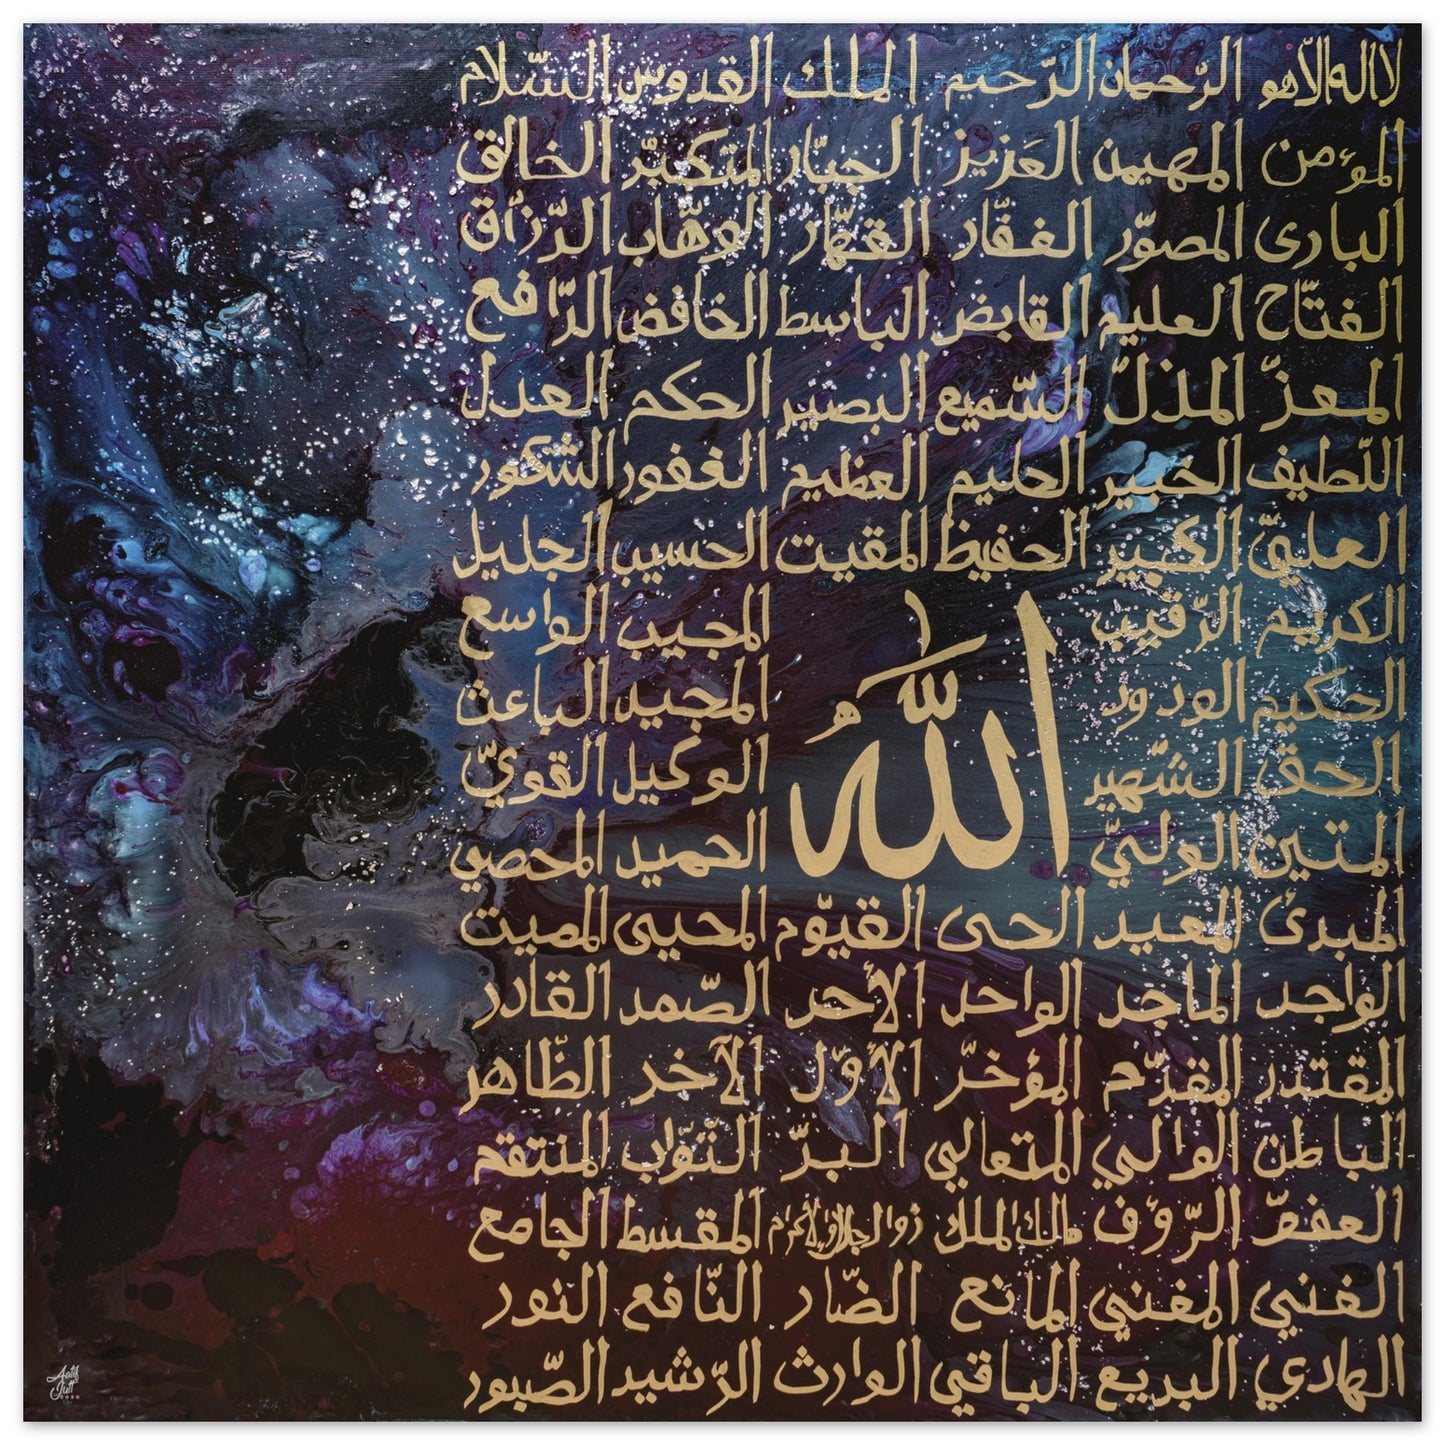 لا اله الا هو الرّحمان الرّحيم الملك القدوس السّلام
المؤمن المهيمن العَزيز الجبّار المتكبّر الخالق
البارى المصوّر الغفّار القهّار الوهّاب الرّزاق
الفتّاح العليم القابض الباسط الخافض الرّافع
المعزّ المذلّ السّميع البصير الحكم العدل
اللّطيف الخبير الحليم العظيم الغفور الشكور
العليّ الكبير الحفيظ المقيت الحسيب الجليل
الكريم الرّقيب المجيب الواسع
الحكيم الودود المجيد الباعث
اللّٰهُ
الحق الشّهير الوكيل القويّ
المتين الوليّ الحميد المحصي
المبدئ المعيد الحى القيّوم المحيى المميت
الواجد الماجد الواحد الأحد الصّمد القادر
المقتدر المقدّم المؤخّر الأوّل الآخر الظّاهر
الباطن الوالي المتعالي البرّ التّوّاب المنتقم
العفوّ الرّؤف مالك الملك ذوالجلال والاكرام المقسط الجامع
الغني المغني المانع الضّار النّافع النور
الهادي البديع الباقي الوارث الرّشيد الصّبور
Aatif
Jutt
2020